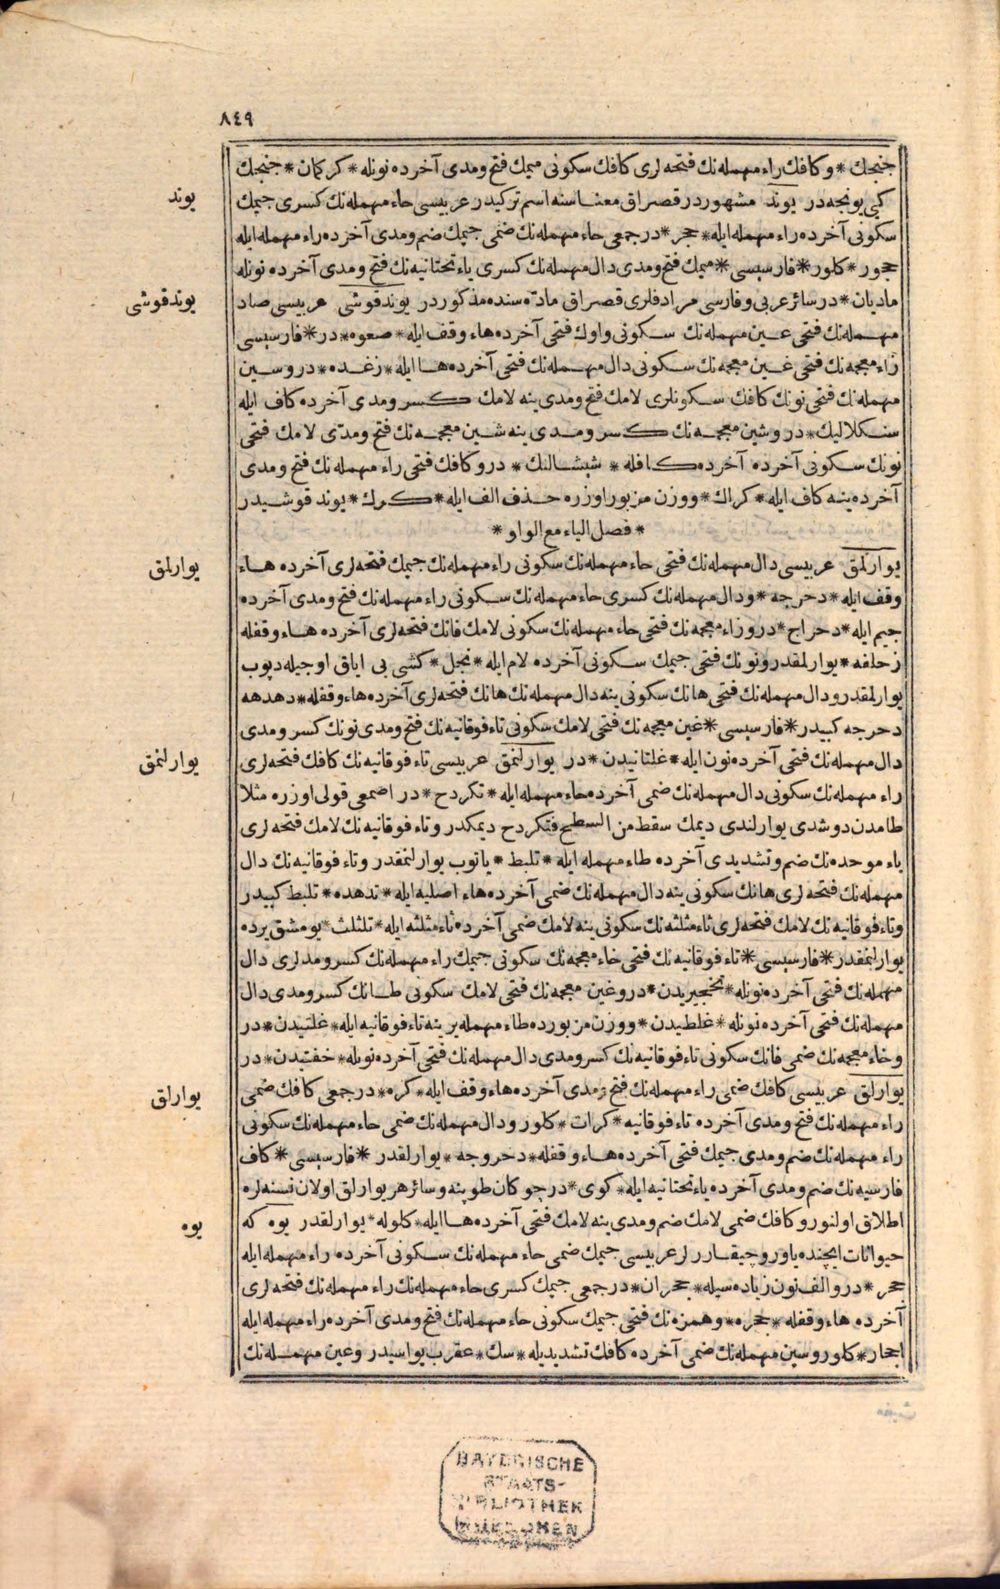 ٨٤٩
جنجك * وكافك راء مهمله نك فتحه لرى كافك سكونى ميمك فتح ومدى آخرده نونله * كركمان * جنجك
يوند
كبى يونجه در يوند مشهور در قصراق معناسنه اسم تركيدر عربيسى حاء مهمله نك كسرى جيمك
سكونى آخرده راء مهمله ايله * حجر * در جمعى حاء مهمله نك ضمى جيمك ضم ومدى آخرده راء مهمله ايله
حجور * كلور * فارسيسى * ميمك فتح ومدى دال مهمله نك كسرى ياء تحتانيه نك فتح ومدى آخرده نونله
يوندقوشى
ماديان * در سائر عربى وفارسى مرادفلرى قصراق ماده سنده مذكوردر يوندقوشى عربيسى صاد
مهمله نك فتحى عين مهمله نك سكونى واوك فتحى آخرده هاء وقف ايله * صعوه * در * فارسيسى
زاء معجمه نك فتحى غين معجمه نك سكونى دال مهمله نك فتحى آخرده ها ايله * زغده * در وسين
مهمله نك فتحى نونك كافك سكونلرى لامك فتح ومدى ينه لامك كسر ومدى آخرده كاف ايله
سنكلاليك * در وشين معجمه نك كسر ومدى ينه شين معجمه نك فتح ومدى لامك فتحى
نونك سكونى آخرده آخرده كافله * شيشالنك * در وكافك فتحى راء مهمله نك فتح ومدى
آخرده ينه كاف ايله * كراك * ووزن مزبور اوزره حذف الف ايله * كرك * يوند قوشيدر
* فصل الياء مع الواو *
يوارلمق
يوارلمق عربيسى دال مهمله نك فتحى حاء مهمله نك سكونى راء مهمله نك جيمك فتحه لرى آخرده هاء
وقف ايله * دحرجه * ودال مهمله نك كسرى حاء مهمله نك سكونى راء مهمله نك فتح ومدى آخرده
جيم ايله * دحراج * در وزاء معجمه نك فتحى حاء مهمله نك سكونى لامك فانك فتحه لرى آخرده هاء وقفله
زحلفه * يوارلمقدر ونونك فتحى جيمك سكونى آخرده لام ايله * نجل * كشى بى اياق اوجيله دپوب
يوارلمقدر ودال مهمله نك فتحى هانك سكونى ينه دال مهمله نك هانك فتحه لرى آخرده هاء وقفله * دهدهه
دحرجه كبيدر * فارسيسى * غين معجمه نك فتحى لامك سكونى تاء فوقانيه نك فتح ومدى نونك كسر ومدى
يوارلنمق
دال مهمله نك فتحى آخرده نون ايله * غلتانيدن * در يوارلنمق عربيسى تاء فوقانيه نك كافك فتحه لرى
راء مهمله نك سكونى دال مهمله نك ضمى آخرده حاء مهمله ايله * تكردح * در اصمعى قولى اوزره مثلا
طامدن دوشدى يوارلندى ديمك سقط من السطح فتكردح ديمكدر وتاء فوقانيه نك لامك فتحه لرى
باء موحده نك ضم وتشديدى آخرده طاء مهمله ايله * تلبط * ياتوب يوارلنمقدر وتاء فوقانيه نك دال
مهمله نك فتحه لرى هانك سكونى ينه دال مهمله نك ضمى آخرده هاء اصليه ايله * تدهده * تلبط كبيدر
وتاء فوقانيه نك لامك فتحه لرى ثاء مثلثه نك سكونى ينه لامك ضمى آخرده ثاء مثلثه ايله * تلثلث * يومشق يرده
يوارلنمقدر * فارسيسى * تاء فوقانيه نك فتحى خاء معجمه نك سكونى جيمك راء مهمله نك كسر ومدلرى دال
مهمله نك فتحى آخرده نونله * تخجيريدن * در وغين معجمه نك فتحى لامك سكونى طانك كسر ومدى دال
مهمله نك فتحى آخرده نونله * غلطيدن * ووزن مزبورده طاء مهمله يرينه تاء فوقانيه ايله * غلتيدن * در
وخاء معجمه نك ضمى فانك سكونى تاء فوقانيه نك كسر ومدى دال مهمله نك فتحى آخرده نونله * خفتيدن * در
يوارلق
يوارلق عربيسى كافك ضمى راء مهمله نك فتح ومدى آخرده هاء وقف ايله * كره * در جمعى كافك ضمى
راء مهمله نك فتح ومدى آخرده تاء فوقانيه * كرات * كلور ودال مهمله نك ضمى حاء مهمله نك سكونى
راء مهمله نك ضم ومدى جيمك فتحى آخرده هاء وقفله * دحروجه * يوارلقدر * فارسيسى * كاف
فارسيه نك ضم ومدى آخرده ياء تحتانيه ايله * كوى * در چوكان طوپنه وسائر هر يوارلق اولان نسنه لره
اطلاق اولنور وكافك ضمى لامك ضم ومدى ينه لامك فتحى آخرده ها ايله * كلوله * يوارلقدر يوه كه
يوه
حيوانات ايچنده ياورو چيقارر لر عربيسى جيمك ضمى حاء مهمله نك سكونى آخرده راء مهمله ايله
جحر * در والف نون زياده سيله * جحران * در جمعى جيمك كسرى حاء مهمله نك راء مهمله نك فتحه لرى
آخرده هاء وقفله * جحره * وهمزه نك فتحى جيمك سكونى حاء مهمله نك فتح ومدى آخرده راء مهمله ايله
اجحار * كلور وسين مهمله نك ضمى آخرده كافك تشديديله * سك * عقرب يواسيدر وعين مهمله نك
BAYERISCHE
STAATS-
BIBLIOTHEK
MUENCHEN